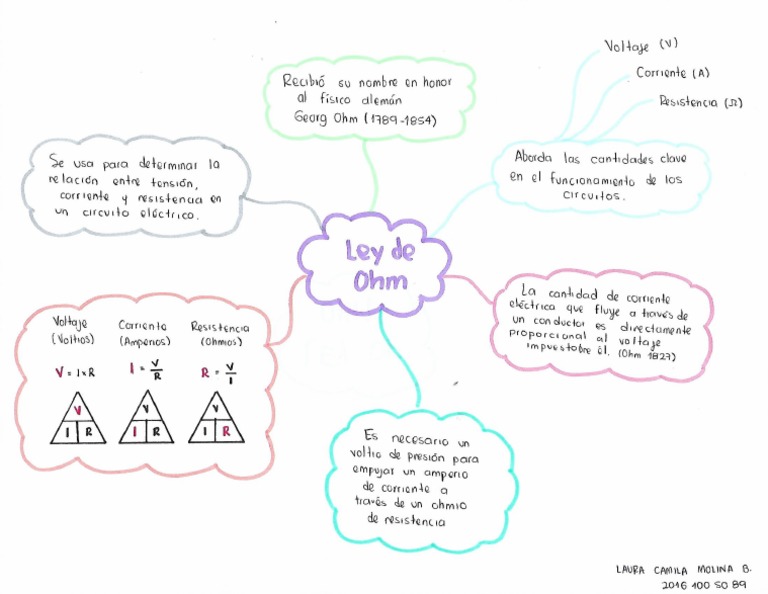 Voltaje (V)
Corriente (A)
Resistencia (Ω)
Recibió su nombre en honor
al físico alemán
Georg Ohm (1789-1854)
Se usa para determinar la
relación entre tensión,
corriente y resistencia en
un circuito eléctrico.
Aborda las cantidades clave
en el funcionamiento de los
circuitos.
Ley de
Ohm
La cantidad de corriente
eléctrica que fluye a través de
un conductor es directamente
proporcional al voltaje
impuestobre él. (Ohm 1827)
Voltaje
(Voltios)
V = I x R
V
I R
Corriente
(Amperios)
I = V/R
V
I R
Resistencia
(Ohmios)
R = V/I
V
I R
Es necesario un
voltio de presión para
empujar un amperio
de corriente a
través de un ohmio
de resistencia
LAURA CAMILA MOLINA B.
2016 100 50 89